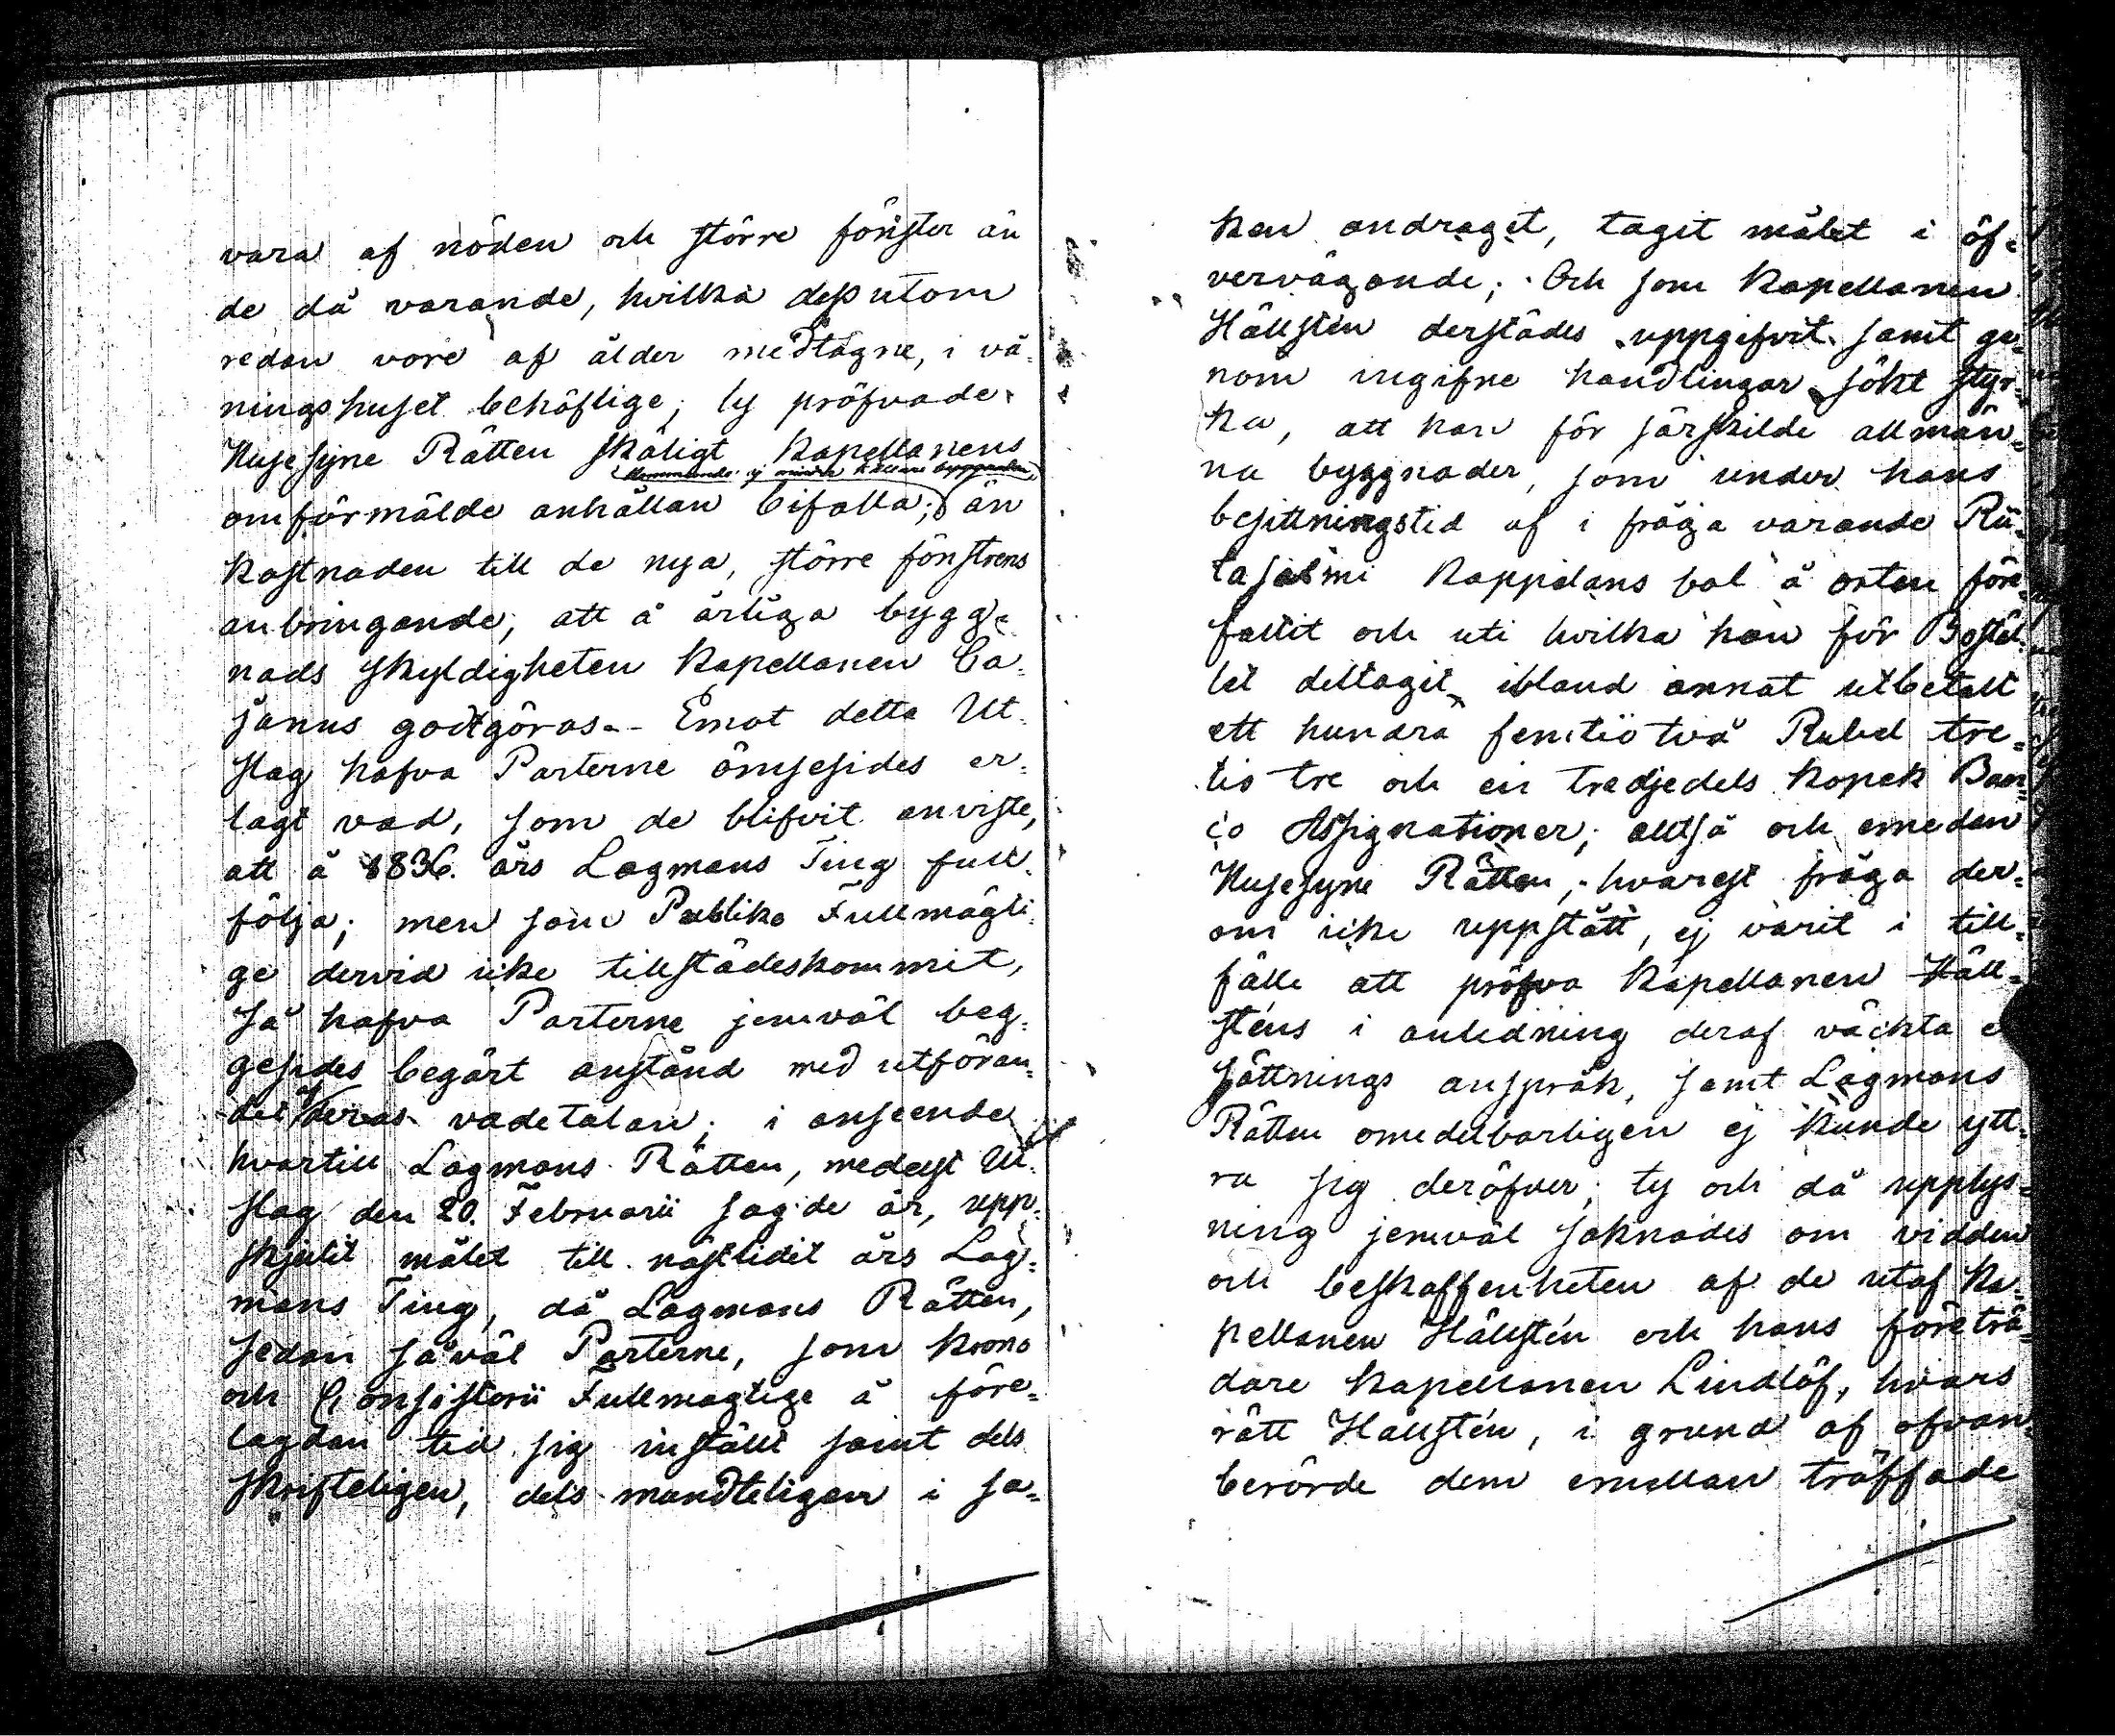 vara af nöden och större fönster än
de då varande, hvilka dessutom
redan vore af ålder medtagne, i vå-
ningshuset behöflige; ty pröfvade
Husesyne Rätten skäligt Kapellanens
kommande ej mindre
omförmälde anhållan bifalla; än
kostnaden till de nya, större fönstrens
anbringande, att å årliga bygg-
nads skyldigheten Kapellanen Ca-
janus godtgöras. - Emot detta Ut-
slag hafva Parterne ömsesides er-
lagt vad, som de blifvit anviste,
att å 1836. års Lagmans Ting full-
följa; men som Publika Fullmägti-
ge dervid icke tillstädeskommit,
Så hafva Parterne jemväl beg-
gesides begärt anstånd med utföran-
det af deras vadetalan; i anseende
hvartill Lagmans Rätten, medelst Ut-
slag den 20. Februarii sagde år, upp-
skjutit målet till nästlidit års Lag-
mans Ting, då Lagmans Rätten,
sedan såväl Parterne, som krono
och Consistorii Fullmägtige å före-
lagdan tid sig inställt samt dels
skrifteligen, dels mundteligen i sa-
ken andraget, tagit målet i öf-
vervägande; Och som Kapellanen
Hällstén derstädes uppgifvit samt ge-
nom ingifne handlingar sökt styr-
ka, att han för särskilde allmän-
na byggnader, som under hans
besittningstid af i fråga varande Ru-
tasalmi Kappelans bol å orten före-
fallit och uti hvilka han för Bostäl-
let deltagit, ibland annat utbetalt
ett hundra femtio två Rubel tre-
tio tre och en tredjedels kopek Ban-
co Assignationer; alltså och emedan
Husesyne Rätten, hvarest fråga der-
om icke uppstått, ej varit i till-
fälle att pröfva Kapellanen Häll-
sténs i anledning deraf väckta
sättnings anspråk, samt Lagmans
Rätten omedelbarligen ej kunde ytt-
ra sig deröfver; ty och då upplys-
ning jemväl saknades om vidden
och beskaffenheten af de utaf Ka-
pellanen Hällstén och hans företrä-
dare Kapellanen Lindlöf, hvars
rätt Hällstén, i grund af ofvan-
berörde dem emellan träffade